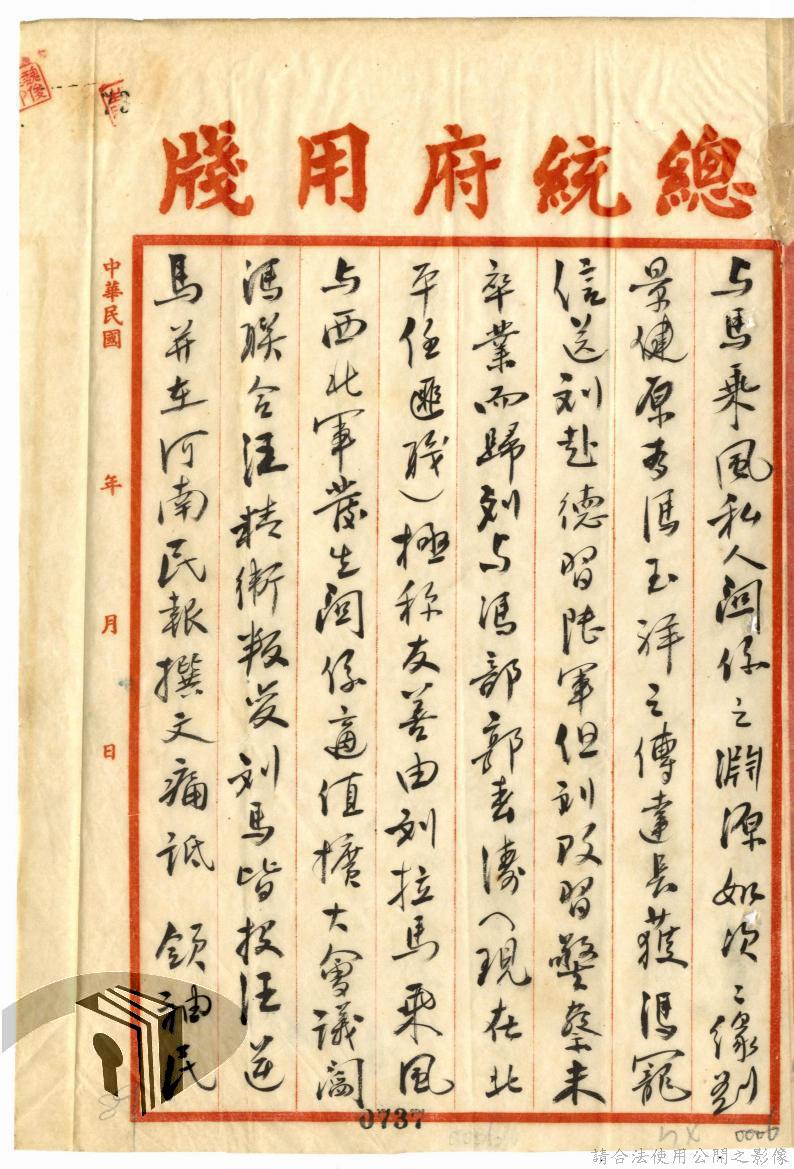 總統府用牋
与馬乘風私人関係之淵源如次:緣刘
景健原为馮玉祥之傳達長獲馮寵
信送刘赴德習陸軍但刘改習警察未
卒業而歸刘与馮部郭春濤(現在北
平任匪職)極称友善由刘拉馬乘風
与西北軍發生関係適值擴大會議閻
馮联合汪精衛叛变刘馬皆投汪逆
馬并在河南民報撰文痛詆 領袖民
中華民國 年 月 日
0737
0006
請合法使用公開之影像